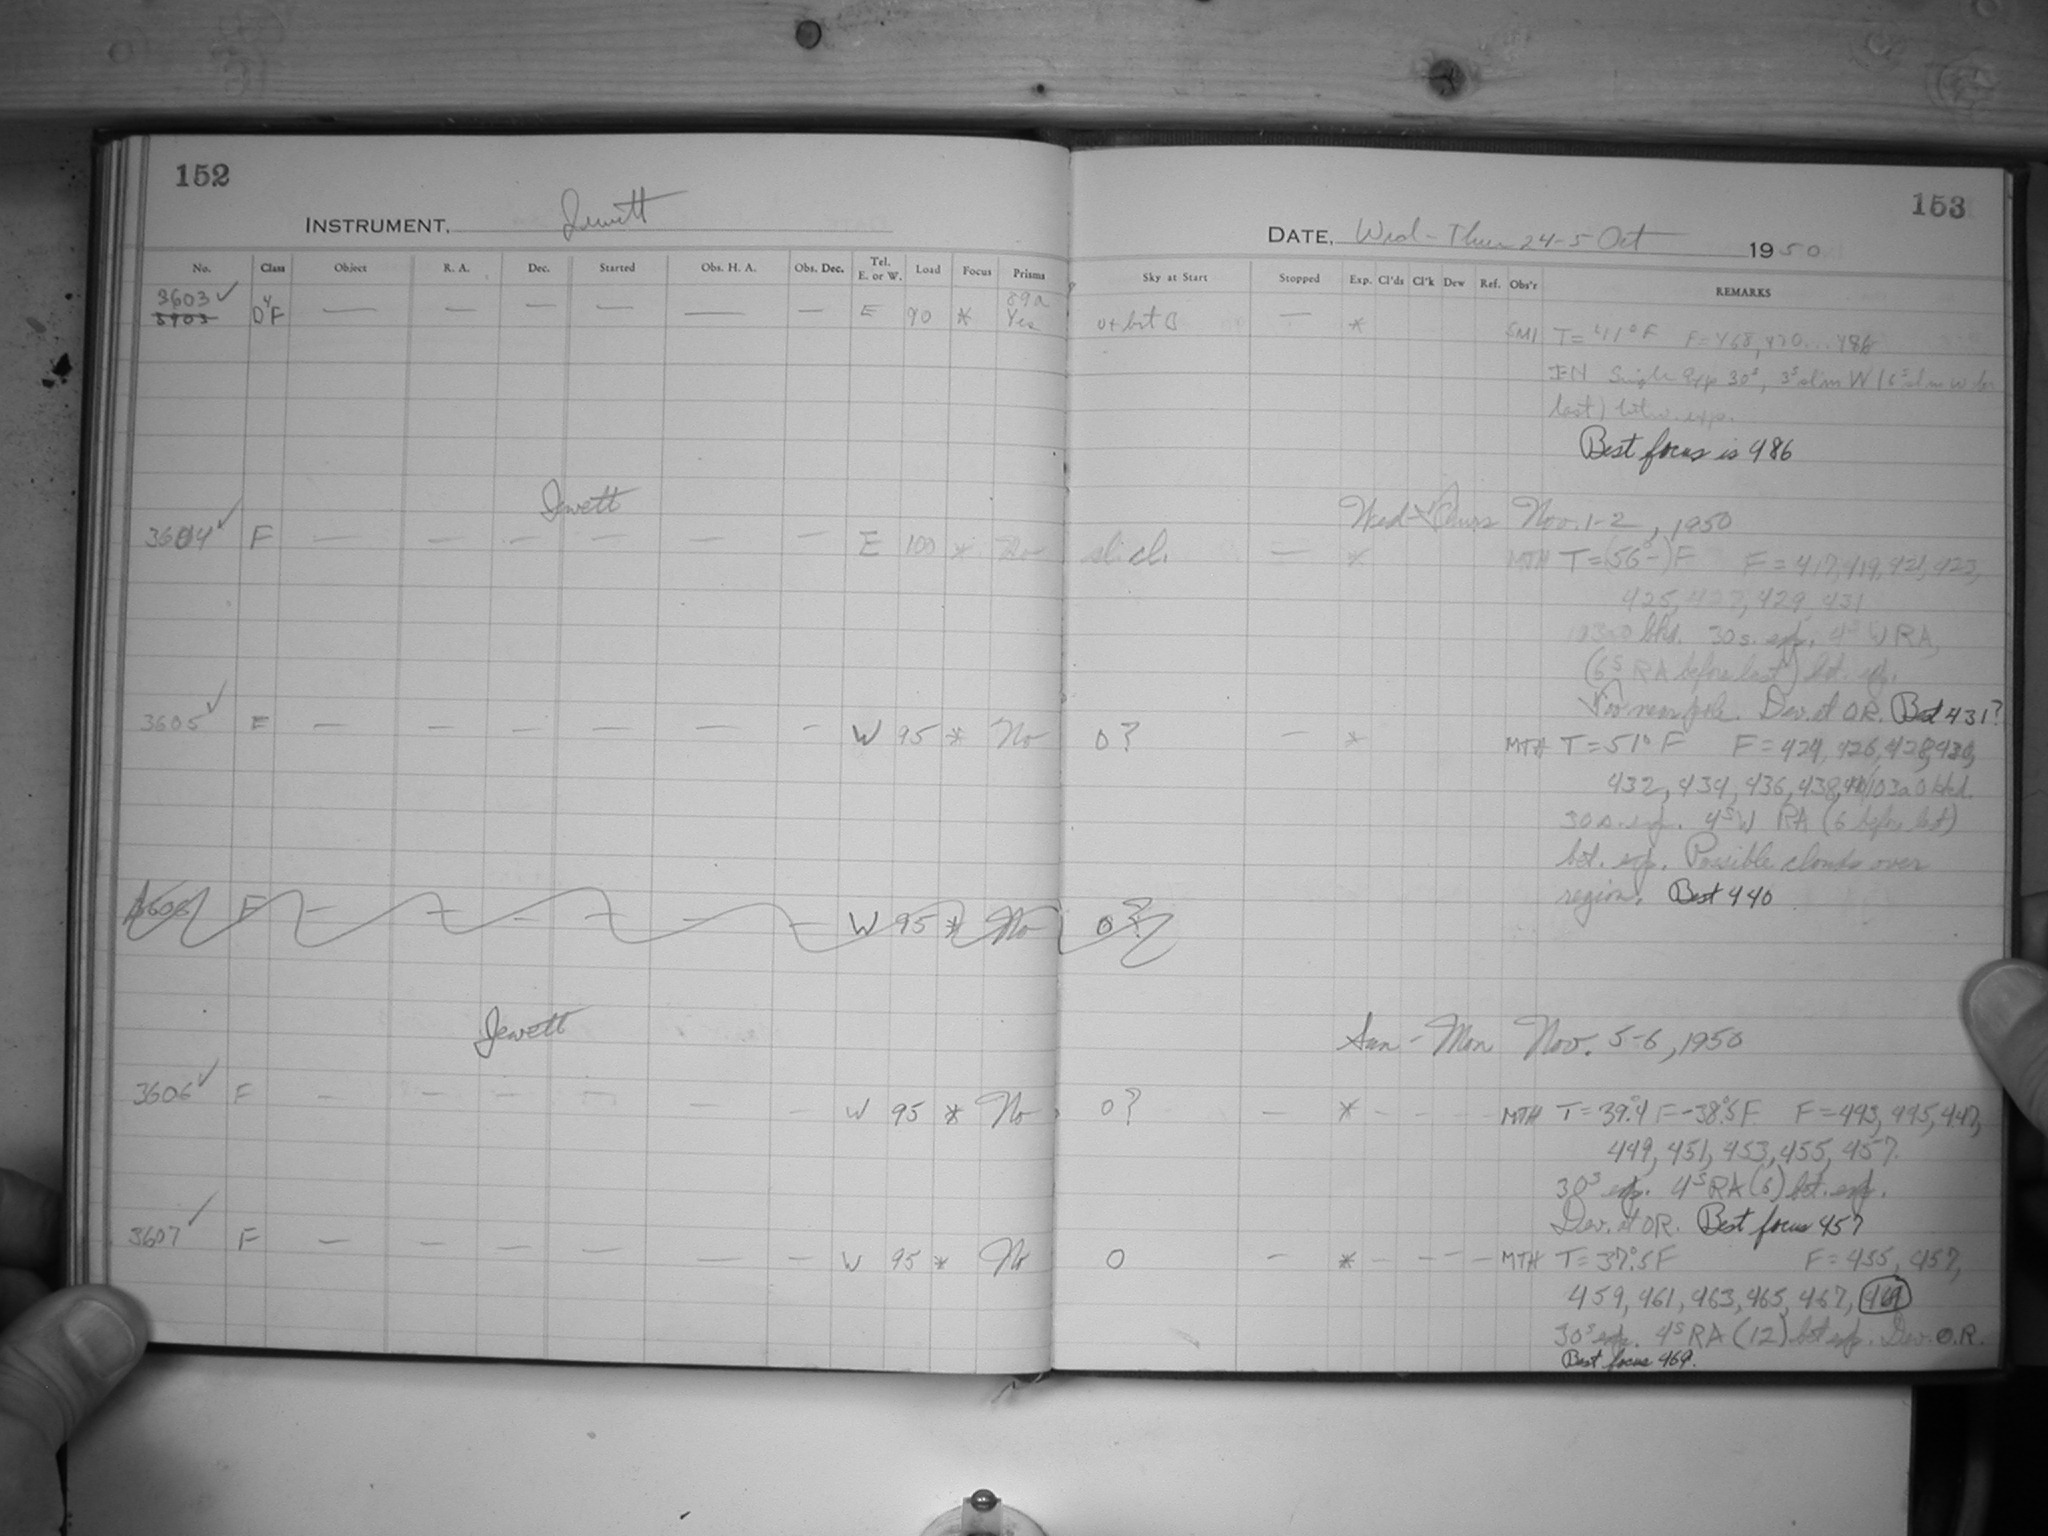 152
153
INSTRUMENT. Jewett
DATE. Wed-Thur 24-5 Oct 1950
No. Class Object R. A. Dec. Started Obs. H. A. Obs. Dec. Tel. E. or W. Load Focus Prisms Sky at Start Stopped Exp. Cl'ds Cl'k Dew Ref. Obs'r REMARKS
3603 ✓ 89a
3903 D4F — — — — — — E 90 * Yes — * T = 41°F F = 468, 470...486
30s, 3s W
last) exp.
Best focus is 486
Jewett Wed-Thurs Nov. 1-2, 1950
3604 ✓ F — — — — — — E 100 * No sl. cl. — * MTH T = (56°-)F F = 417, 419, 421, 423,
425, 427, 429, 431
30s. exp. 4s W RA,
(6s RA before last) bet. exp.
near pole. Dev. at OR. Best 431?
3605 ✓ F — — — — — — W 95 * No 0? — * MTH T = 51° F F = 424, 426, 428, 430,
432, 434, 436, 438, 440 103a0 bkd.
30s. exp. 4s W RA (6 before last)
bet. exp. Possible clouds over
region. Best 440
3606 F — — — — — — W 95 * No 0?
Jewett Sun-Mon Nov. 5-6, 1950
3606 ✓ F — — — — — — W 95 * No 0? — * - - - - MTH T = 39°.4 F - 38°.5 F F = 443, 445, 447,
449, 451, 453, 455, 457.
30s exp. 4s RA (6) bet. exp.
Dev. at OR. Best focus 457
3607 ✓ F — — — — — — W 95 * No 0 — * - - - - MTH T = 37°.5 F F = 455, 457,
459, 461, 463, 465, 467, 469
30s exp. 4s RA (12) bet exp. Dev. O.R.
Best focus 469.